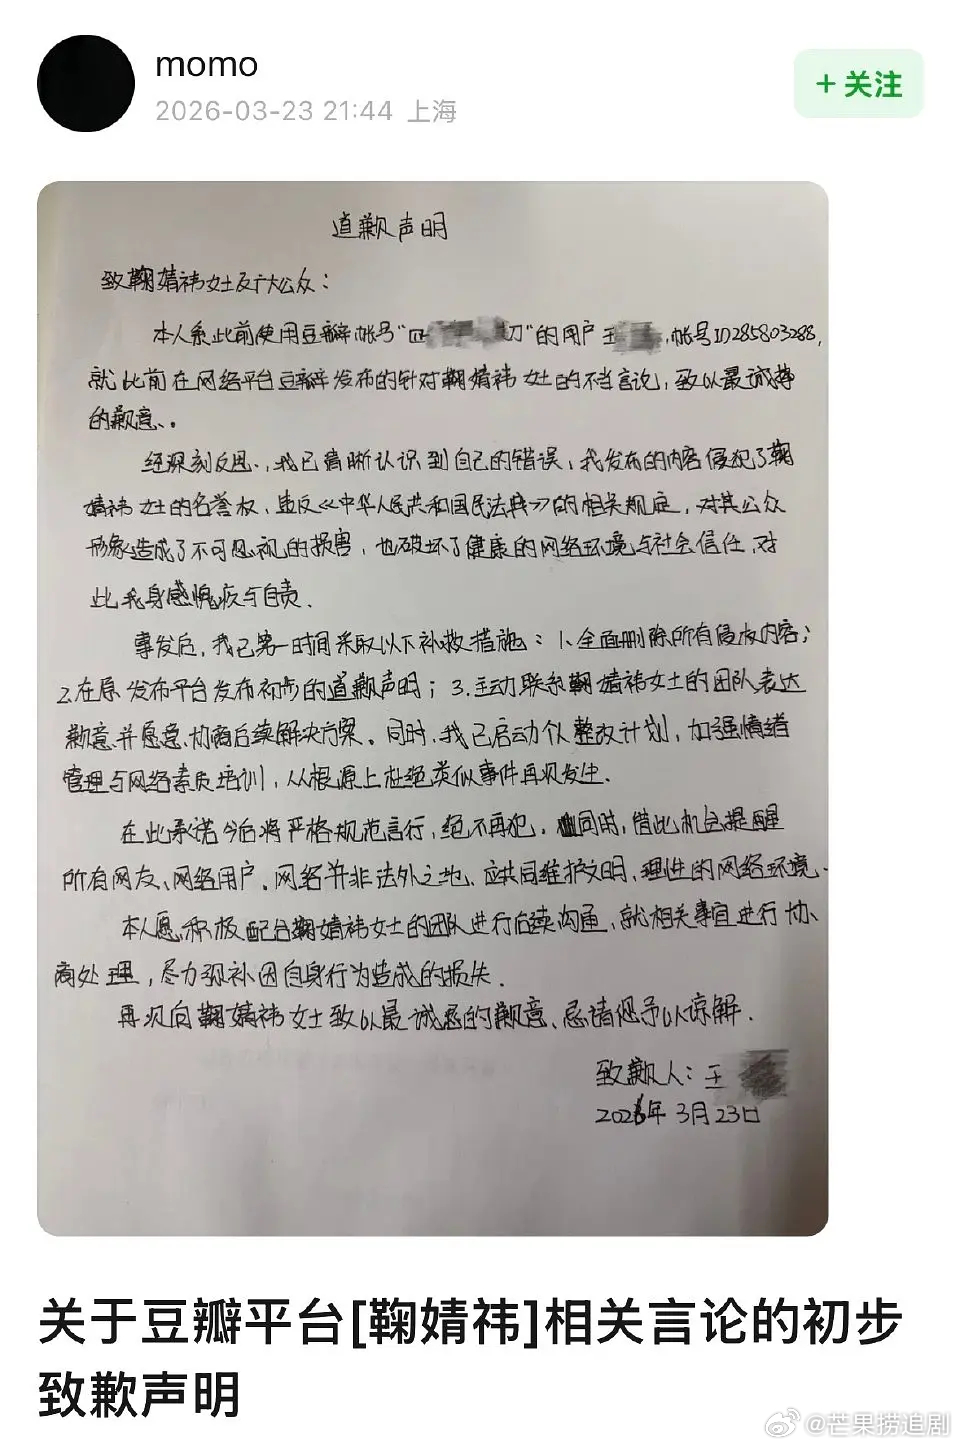 momo
2026-03-23 21:44 上海
+ 关注
道歉声明
致鞠婧祎女士及广大公众：
本人系此前使用豆瓣帐号“四 切”的用户王 ，帐号ID285803288，
就此前在网络平台豆瓣发布的针对鞠婧祎女士的不当言论，致以最诚挚
的歉意、。
经深刻反思，我已清晰认识到自己的错误，我发布的内容侵犯了鞠
婧祎女士的名誉权，违反《中华人民共和国民法典》的相关规定，对其公众
形象造成了不可忽视的损害，也破坏了健康的网络环境与社会信任，对
此我身感愧疚与自责.
事发后，我已第一时间采取以下补救措施：1.全面删除所有侵权内容；
2.在原发布平台发布初步的道歉声明；3.主动联系鞠婧祎女士的团队表达
歉意并愿意协商后续解决方案。同时，我已启动个人整改计划，加强情绪
管理与网络素质培训，从根源上杜绝类似事件再次发生.
在此承诺今后将严格规范言行，绝不再犯. 同时，借此机会提醒
所有网友、网络用户.网络并非法外之地、应共同维护文明、理性的网络环境.
本人愿积极配合鞠婧祎女士的团队进行后续沟通，就相关事宜进行协
商处理，尽力弥补因自身行为造成的损失.
再次向鞠婧祎女士致以最诚恳的歉意、恳请您予以谅解.
致歉人：王
2026年3月23日
关于豆瓣平台[鞠婧祎]相关言论的初步
致歉声明
@芒果捞追剧